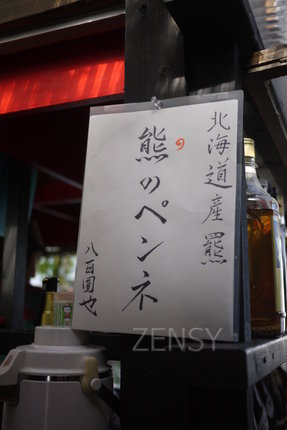 北海道産羆
熊のペンネ
八百圓也
ZENSY